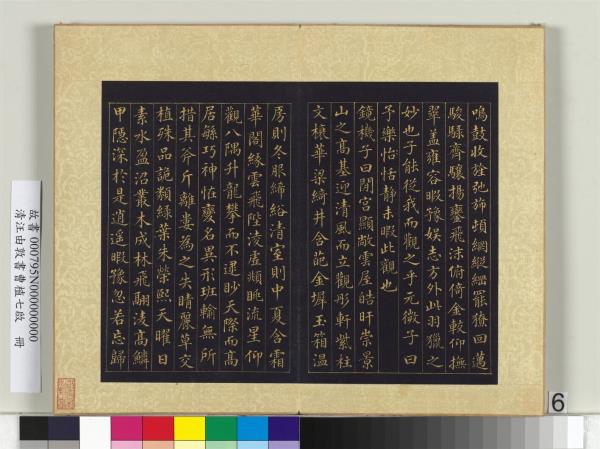 鳴鼓收旌弛旆頓綱縱網罷獠回邁
駿騄齊驤揚鑾飛沫俯倚金較仰撫
翠蓋雍容暇豫娛志方外此羽獵之
妙也子能從我而觀之乎元微子曰
予樂恬恬靜未暇此觀也
鏡機子曰閒宮顯敞雲屋皓旰崇景
山之高基迎清風而立觀彤軒紫柱
文榱華梁綺井含葩金墀玉箱溫
房則冬服絺綌清室則中夏含霜
華閣緣雲飛陛淩虛頫眺流星仰
觀八隅升龍攀而不逮眇天際而高
居繁巧神怪變名異形班輸無所
措其斧斤離婁為之失睛麗草交
植殊品詭類綠葉朱榮熙天曜日
素水盈沼叢木成林飛翮淩高鱗
甲隱深於是逍遙暇豫忽若忘歸
故書 000795N000000000
清汪由敦書曹植七啟 冊
6